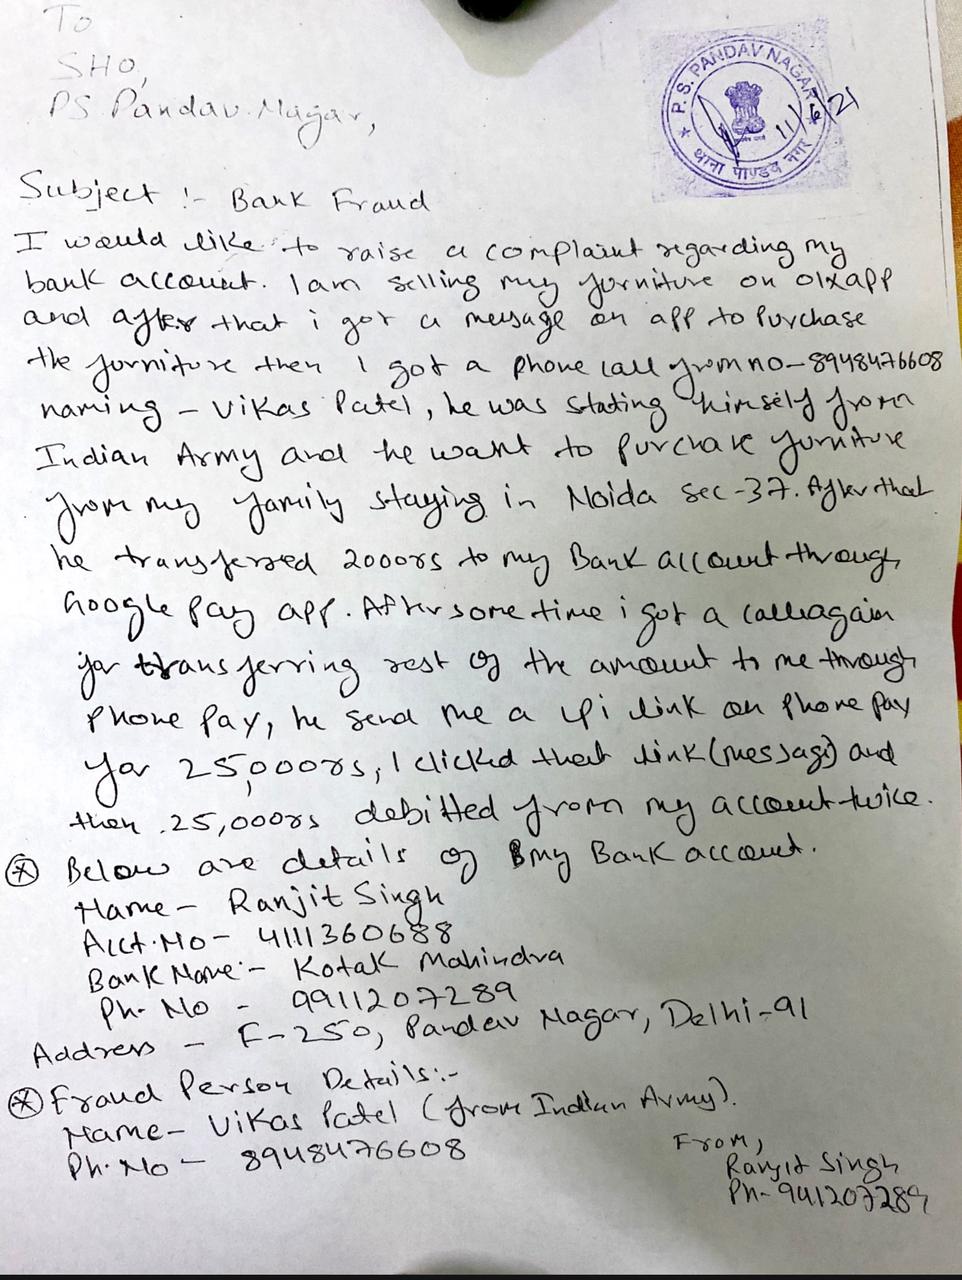 To
SHO,
PS Pandav Nagar,
P.S. PANDAV NAGAR
थाना पाण्डव नगर
11/6/21
Subject :- Bank Fraud
I would like to raise a complaint regarding my
bank account. I am selling my furniture on olxapp
and after that i got a message on app to purchase
the furniture then I got a phone call from no-8948476608
naming - Vikas Patel, he was stating himself from
Indian Army and he want to purchase furniture
from my family staying in Noida Sec-37. After that
he transferred 2000rs to my Bank account through
Google pay app. After some time i got a call again
for transferring rest of the amount to me through
phone pay, he send me a upi link on phone pay
for 25,000rs, I clicked that link (message) and
then 25,000rs debitted from my account twice.
Below are details of my Bank account.
Name - Ranjit Singh
Acct. No - 4111360688
Bank Name:- Kotak Mahindra
Ph. No - 9911207289
Address - F-250, Pandav Nagar, Delhi-91
Fraud Person Details:-
Name - Vikas Patel (from Indian Army).
Ph. No - 8948476608
From,
Ranjit Singh
Ph-